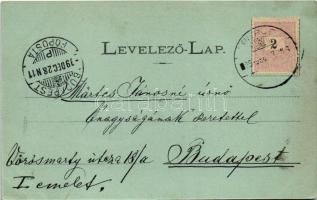 LEVELEZŐ-LAP.
BUDAPEST
FŐPOSTA
2
Mártos Jánosné úrnő
Őnagyságának szeretettel
Vörösmarty utcza 18/a Budapest
I emelet.